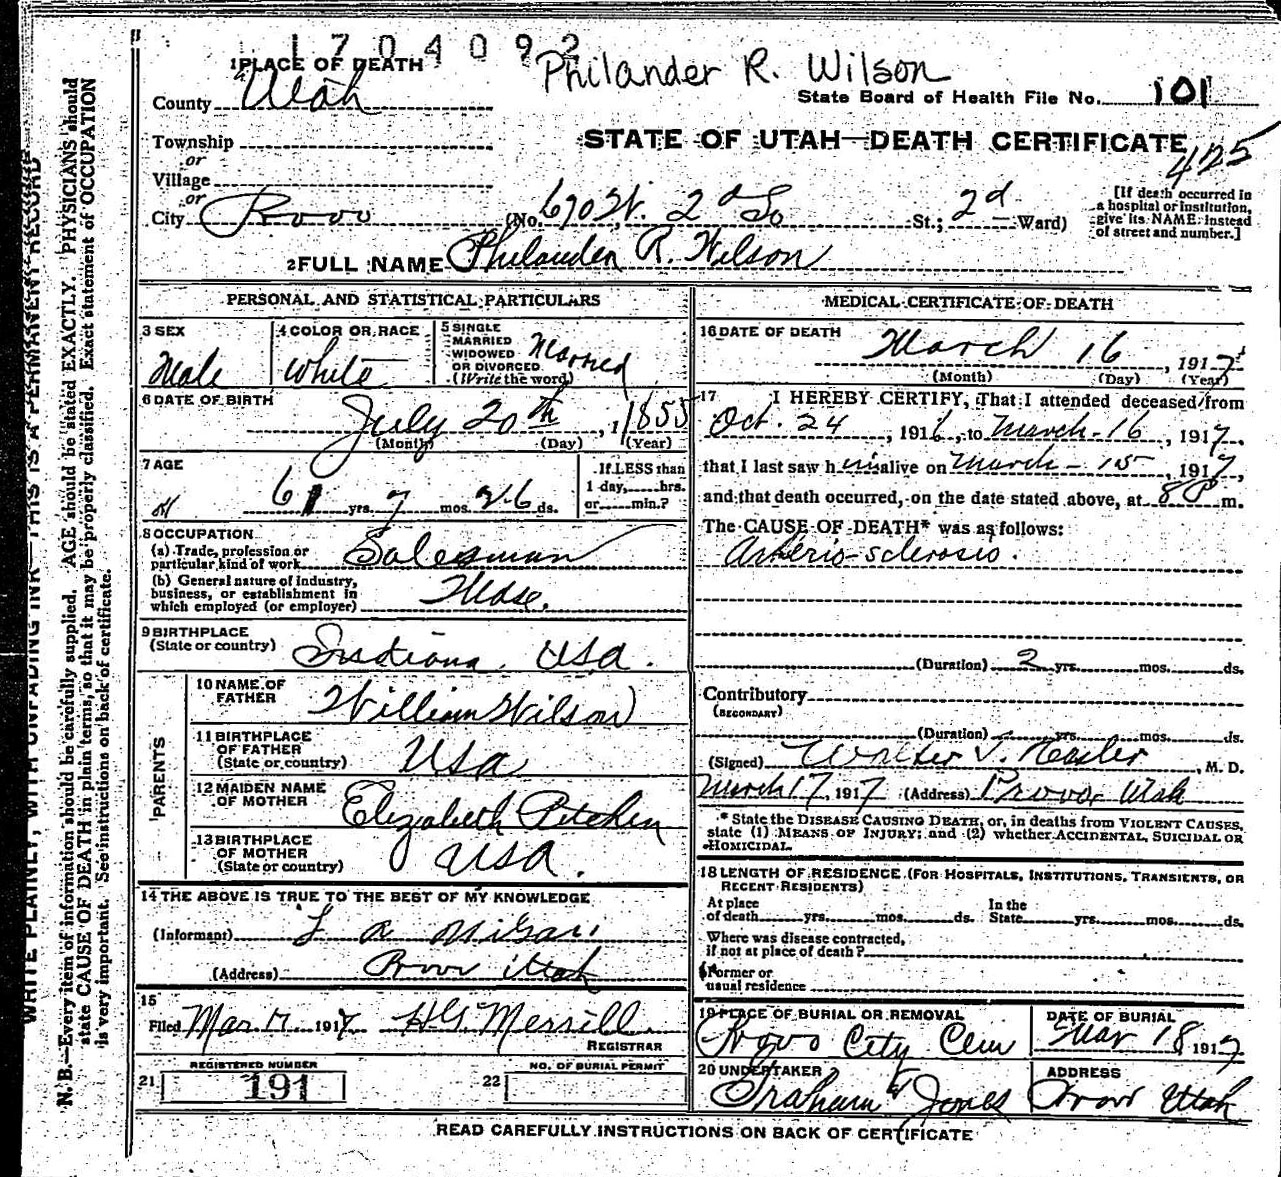 1704092
Philander R. Wilson
1 PLACE OF DEATH
County Utah
State Board of Health File No. 101
Township
or
STATE OF UTAH—DEATH CERTIFICATE
425
Village
or
City Provo (No. 670 W. 2d So St.; 2d Ward)
[If death occurred in
a hospital or institution,
give its NAME instead
of street and number.]
2 FULL NAME Philander R. Wilson
PERSONAL AND STATISTICAL PARTICULARS
3 SEX
Male
4 COLOR OR RACE
White
5 SINGLE
MARRIED
WIDOWED
OR DIVORCED
(Write the word)
Married
6 DATE OF BIRTH
July 20th, 1855
(Month) (Day) (Year)
7 AGE
61 yrs. 7 mos. 26 ds.
If LESS than
1 day, hrs.
or min.?
8 OCCUPATION
(a) Trade, profession or
particular kind of work Salesman
(b) General nature of industry,
business, or establishment in
which employed (or employer) Mdse.
9 BIRTHPLACE
(State or country) Indiana. USA.
PARENTS
10 NAME OF
FATHER William Wilson
11 BIRTHPLACE
OF FATHER
(State or country) USA
12 MAIDEN NAME
OF MOTHER Elizabeth
13 BIRTHPLACE
OF MOTHER
(State or country) USA.
14 THE ABOVE IS TRUE TO THE BEST OF MY KNOWLEDGE
(Informant)
(Address) Provo Utah
15
Filed Mar. 17 1917 HG Merrill
REGISTRAR
REGISTERED NUMBER
21 191
NO. OF BURIAL PERMIT
22
MEDICAL CERTIFICATE OF DEATH
16 DATE OF DEATH
March 16, 1917
(Month) (Day) (Year)
17 I HEREBY CERTIFY, That I attended deceased from
Oct. 24, 1916, to March-16, 1917,
that I last saw him alive on March-15, 1917,
and that death occurred, on the date stated above, at 8 P m.
The CAUSE OF DEATH* was as follows:
Arterio-sclerosis.
(Duration) 2 yrs. mos. ds.
Contributory
(SECONDARY)
(Duration) yrs. mos. ds.
(Signed) Walter T. Hasler, M. D.
March 17, 1917 (Address) Provo, Utah
* State the DISEASE CAUSING DEATH, or, in deaths from VIOLENT CAUSES,
state (1) MEANS OF INJURY; and (2) whether ACCIDENTAL, SUICIDAL OR
HOMICIDAL.
18 LENGTH OF RESIDENCE (FOR HOSPITALS, INSTITUTIONS, TRANSIENTS, OR
RECENT RESIDENTS)
At place
of death yrs. mos. ds.
In the
State yrs. mos. ds.
Where was disease contracted,
if not at place of death?
Former or
usual residence
19 PLACE OF BURIAL OR REMOVAL
Provo City Cem
DATE OF BURIAL
Mar 18 1917
20 UNDERTAKER
Graham & Jones
ADDRESS
Provo Utah
READ CAREFULLY INSTRUCTIONS ON BACK OF CERTIFICATE
WRITE PLAINLY, WITH UNFADING INK—THIS IS A PERMANENT RECORD
N. B.—Every item of information should be carefully supplied. AGE should be stated EXACTLY. PHYSICIANS should
state CAUSE OF DEATH in plain terms, so that it may be properly classified. Exact statement of OCCUPATION
is very important. See instructions on back of certificate.